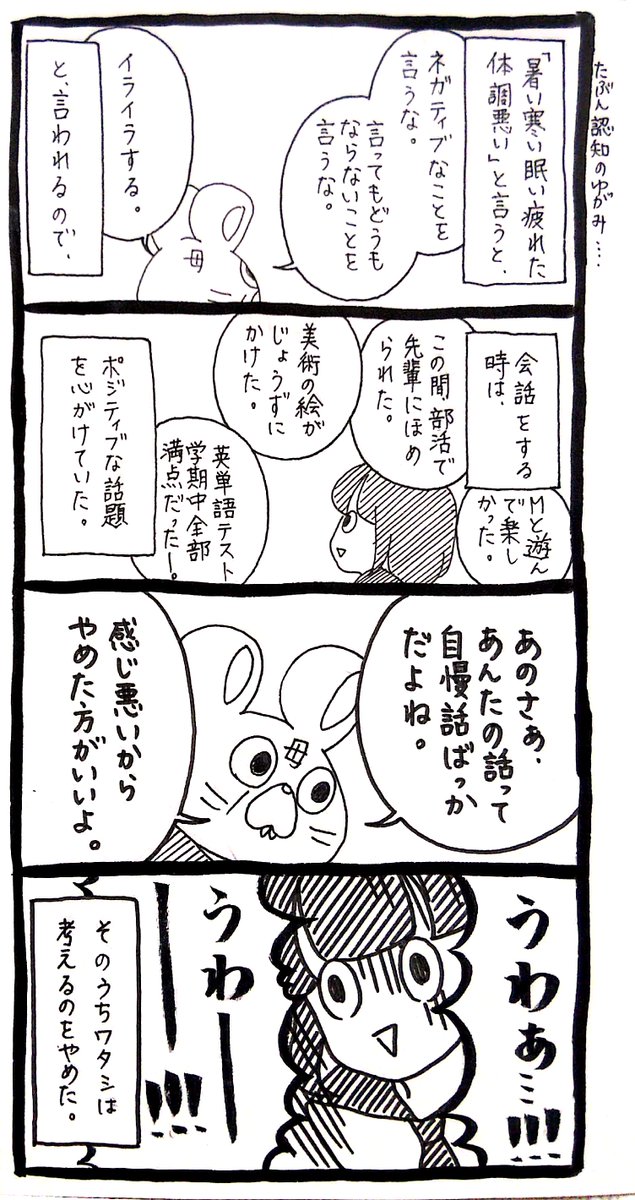 たぶん認知のゆがみ....
「暑い寒い眠い疲れた
体調悪い」と言うと、
ネガティブなことを
言うな。
言ってもどうも
ならないことを
言うな。
イライラする。
と、言われるので、
会話をする
時は、
Mと遊ん
で楽し
かった。
この間、部活で
先輩にほめ
られた。
美術の絵が
じょうずに
かけた。
英単語テスト
学期中全部
満点だったー。
ポジティブな話題
を心がけていた。
あのさぁ、
あんたの話って
自慢話ばっか
だよね。
母
感じ悪いから
やめた方がいいよ。
母
うわぁ…!!!
うわー
ー!!!
そのうちワタシは
考えるのをやめた。